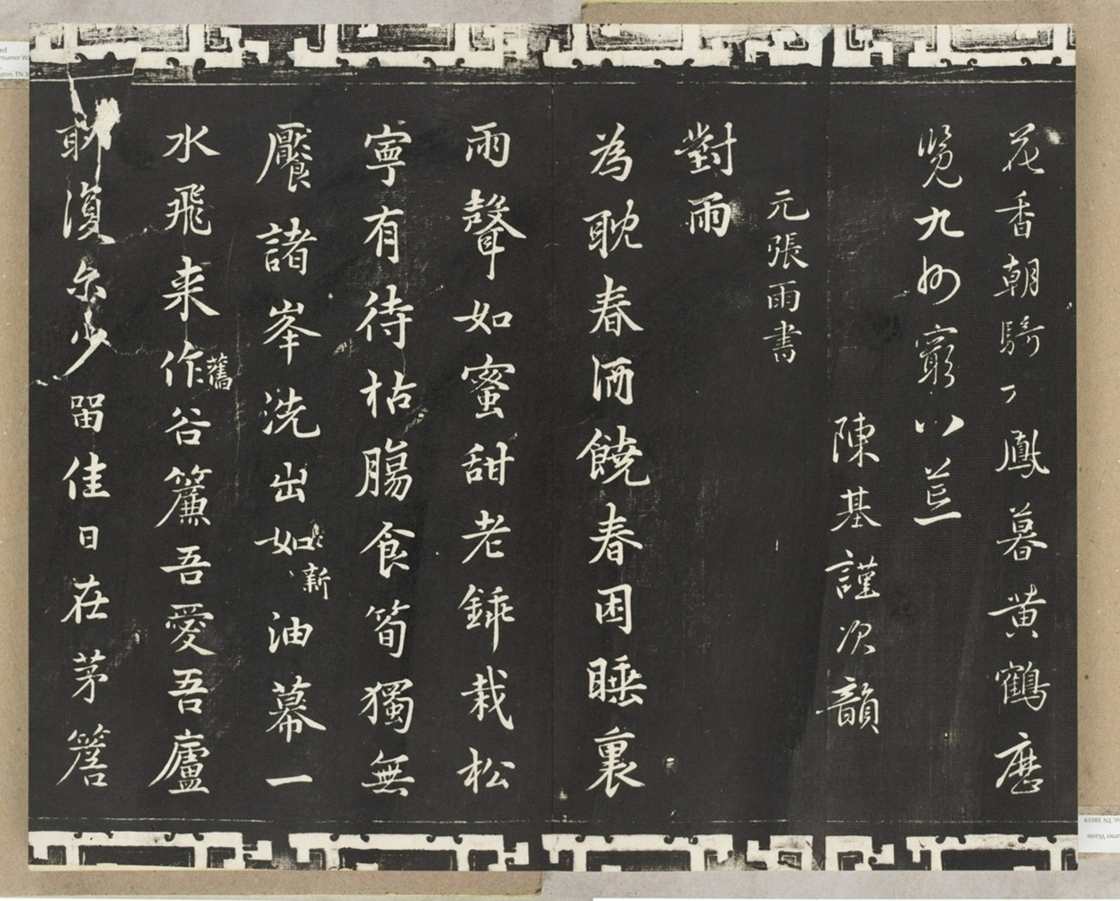 花香朝騎丹鳳暮黄鶴應
覽九州窮八荒
陳基謹次韻
元張雨書
對雨
為耽春酒饒春困睡裏
雨聲如蜜甜老鋛栽松
寧有待枯腸食筍獨無
饜諸峯洗出如新油幕一
水飛来作舊谷簾吾愛吾廬
聊復尔少留佳日在茅簷